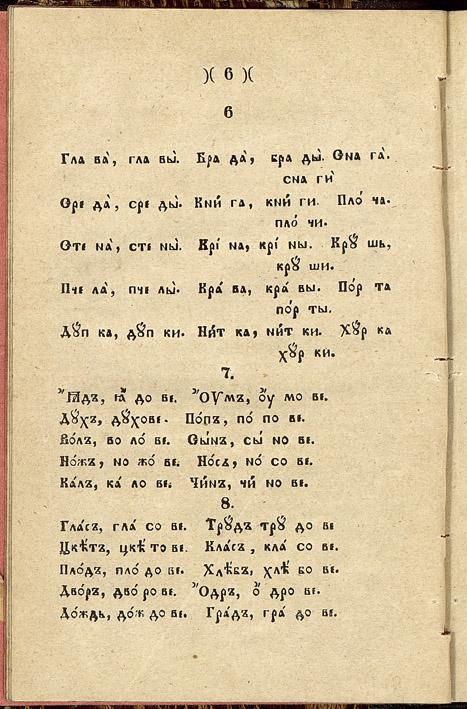 )( 6 )(
6
Гла ва̀, гла вы̀. Бра да̀, бра ды̀. Сна га̀.
сна гѝ
Сре да̀, сре ды̀. Кни́ га, кни́ ги. Пло́ ча.
пло́ чи.
Сте на̀, сте ны̀. Крі́ на, крі́ ны. Крꙋ́ шь,
крꙋ́ ши.
Пче ла̀, пче лы̀. Кра́ ва, кра́ вы. По́р та
по́р ты.
Дꙋ́п ка, дꙋ́п ки. Ни́т ка, ни́т ки. Хꙋ́р ка
хꙋ́р ки.
7.
Ꙗ҆́дъ, ꙗ҆́ до ве. Оу҆́мъ, оу҆́ мо ве.
Дꙋ́хъ, дꙋ́хове. По́пъ, по́ по ве.
Во́лъ, во ло́ ве. Сы́нъ, сы́ но ве.
Но́жъ, но жо́ ве. Но́съ, но́ со ве.
Ка́лъ, ка́ ло ве. Чи́нъ, чи́ но ве.
8.
Гла́съ, гла́ со ве. Трꙋ́дъ трꙋ́ до ве
Цвѣ́тъ, цвѣ́ то ве. Кла́съ, кла́ со ве.
Пло́дъ, пло́ до ве. Хлѣ́бъ, хлѣ́ бо ве.
Дво́ръ, дво́ ро ве. О҆́дръ, о҆́ дро ве.
До́ждь, до́ж до ве. Гра́дъ, гра́ до ве.